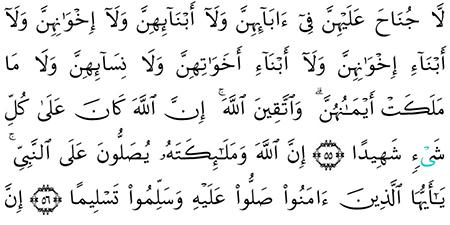 لَّا جُنَاحَ عَلَيْهِنَّ فِىٓ ءَابَآئِهِنَّ وَلَآ أَبْنَآئِهِنَّ وَلَآ إِخْوَٰنِهِنَّ وَلَآ
أَبْنَآءِ إِخْوَٰنِهِنَّ وَلَآ أَبْنَآءِ أَخَوَٰتِهِنَّ وَلَا نِسَآئِهِنَّ وَلَا مَا
مَلَكَتْ أَيْمَٰنُهُنَّ ۗ وَٱتَّقِينَ ٱللَّهَ ۚ إِنَّ ٱللَّهَ كَانَ عَلَىٰ كُلِّ
شَىْءٍ شَهِيدًا ۝٥٥ إِنَّ ٱللَّهَ وَمَلَٰٓئِكَتَهُۥ يُصَلُّونَ عَلَى ٱلنَّبِىِّ ۚ
يَٰٓأَيُّهَا ٱلَّذِينَ ءَامَنُوا۟ صَلُّوا۟ عَلَيْهِ وَسَلِّمُوا۟ تَسْلِيمًا ۝٥٦ إِنَّ